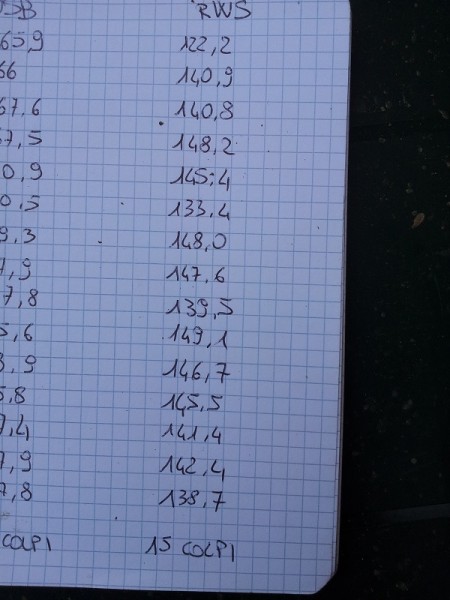 JSB RWS
65,9 122,2
66 140,9
67,6 140,8
67,5 148,2
0,9 145,4
0,5 133,4
9,3 148,0
7,9 147,6
7,8 139,5
5,6 149,1
3,9 146,7
5,8 145,5
7,4 141,4
7,9 142,4
7,8 138,7
COLPI 15 COLPI